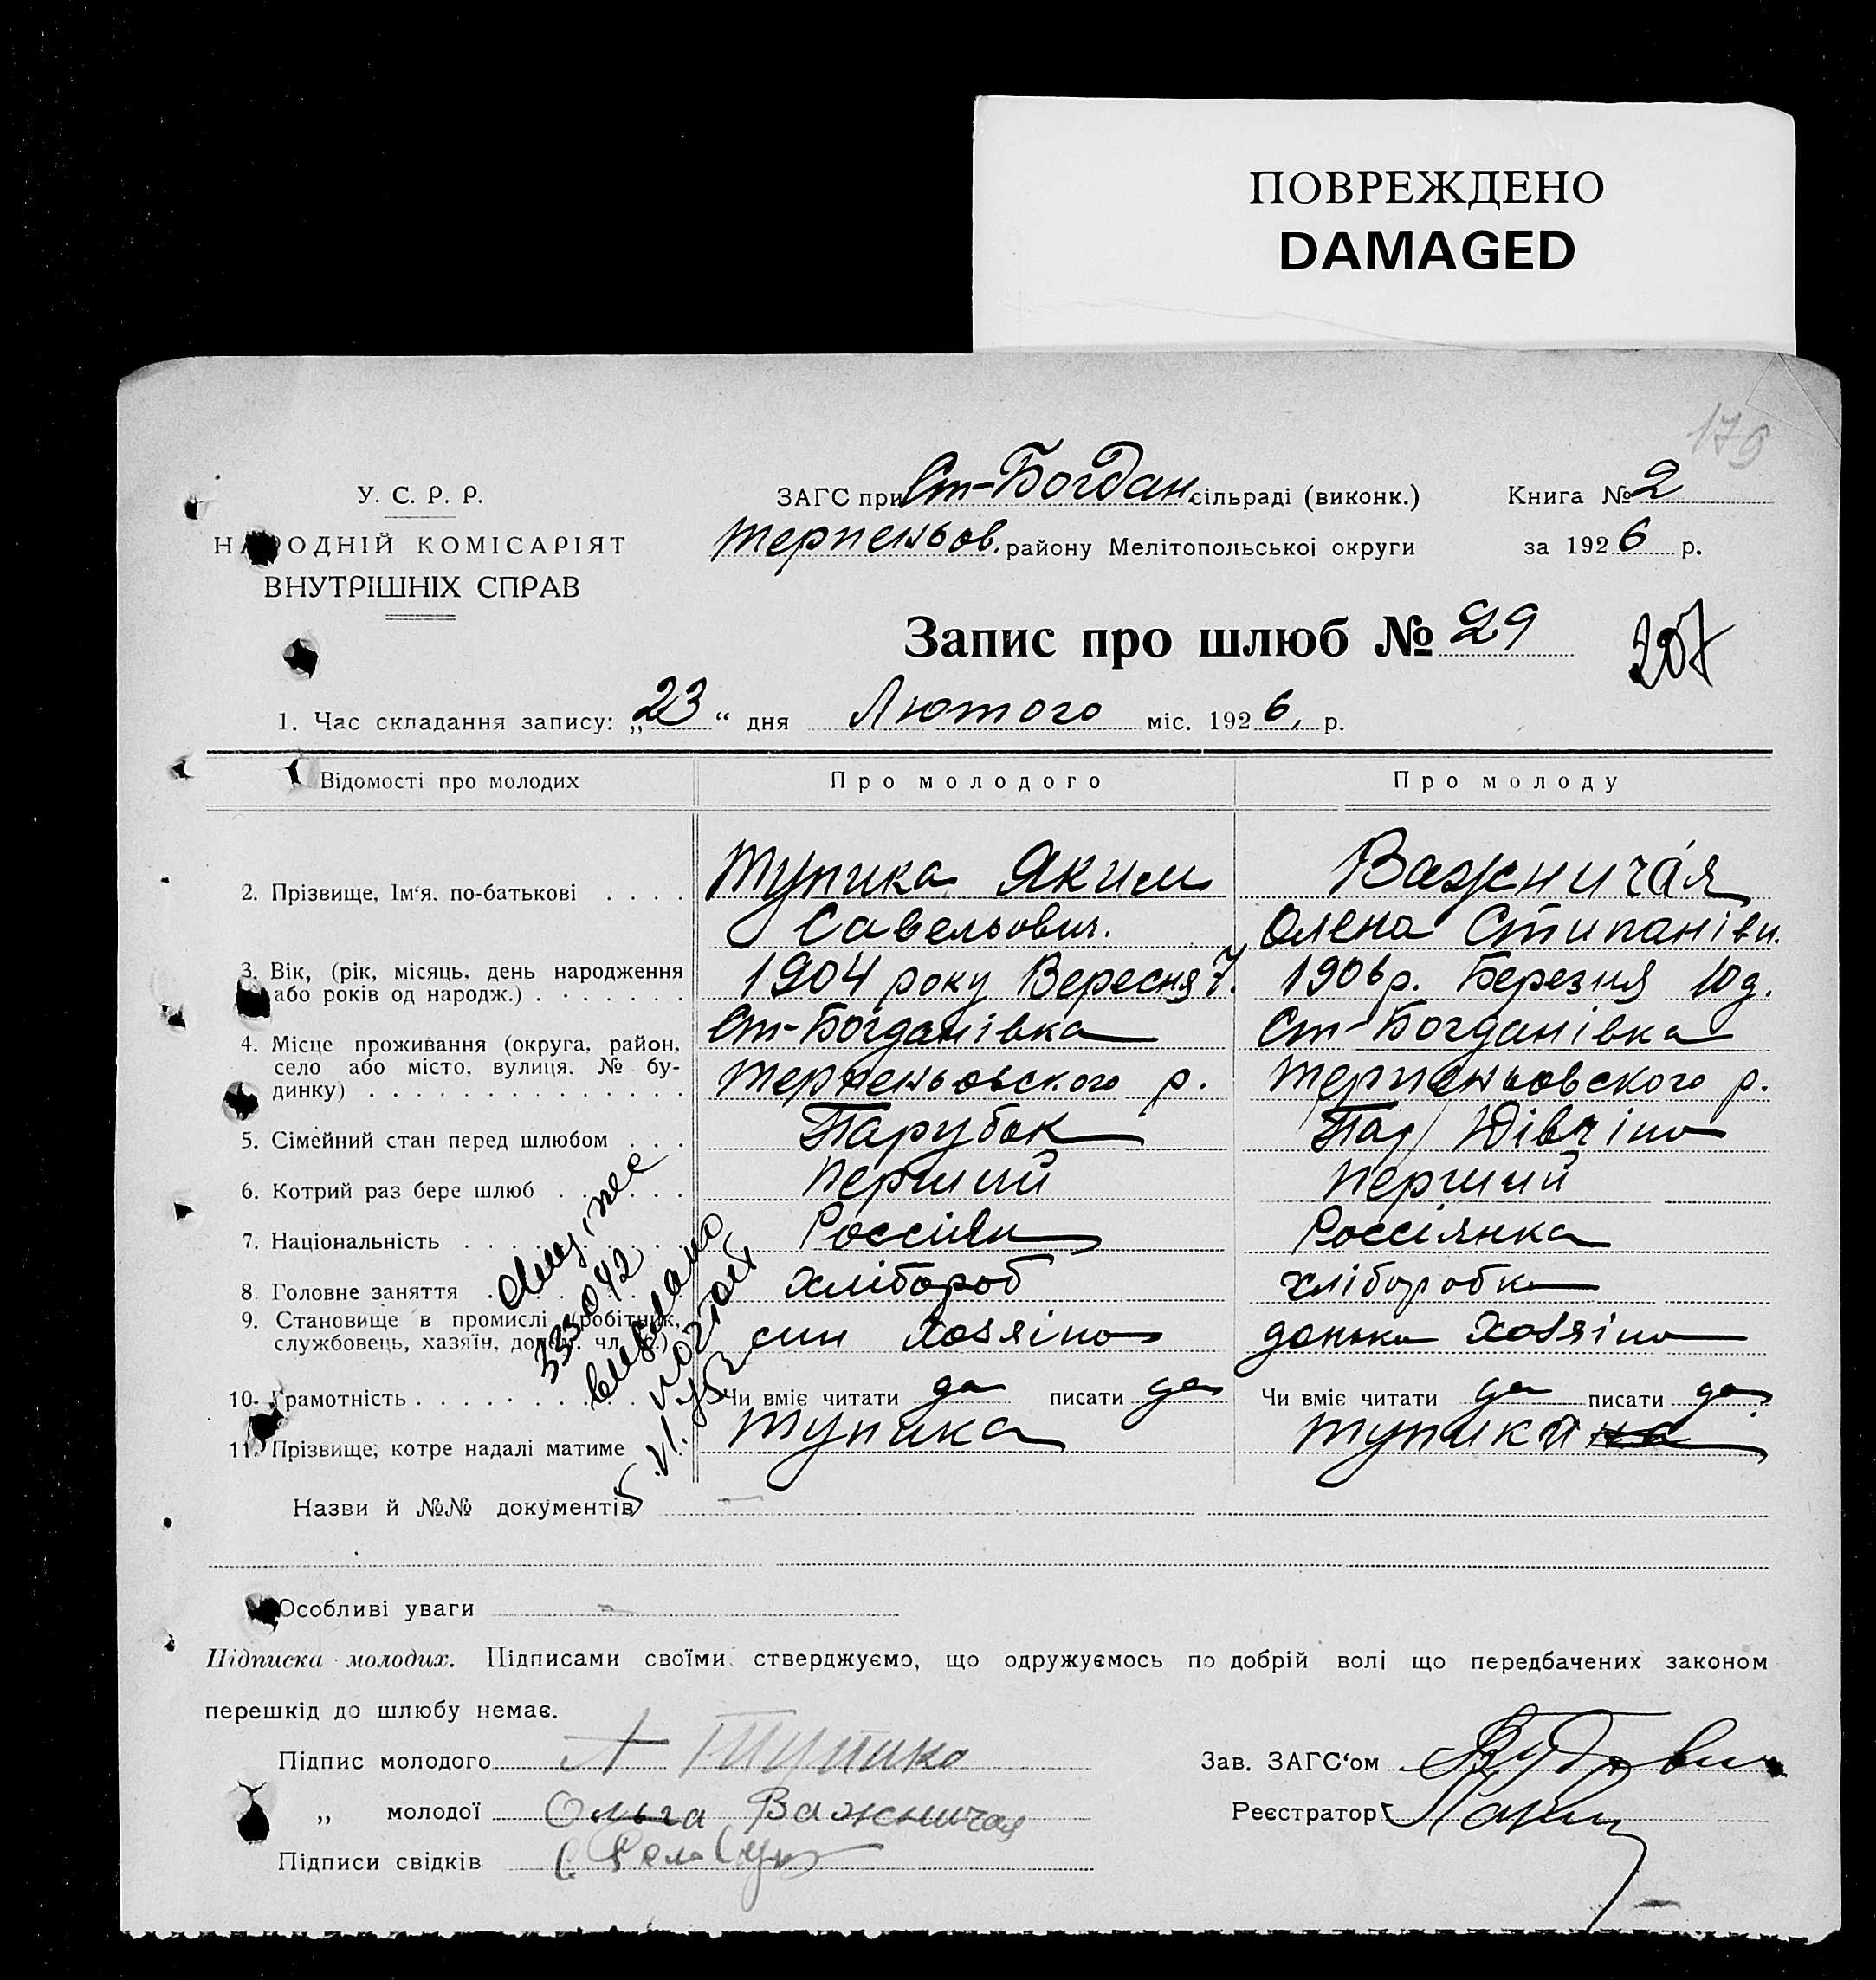 ПОВРЕЖДЕНО
DAMAGED
179
У. С. Р. Р.
НАРОДНІЙ КОМІСАРІЯТ
ВНУТРІШНІХ СПРАВ
ЗАГС при Ст-Богдан. сільраді (виконк.)
Терпеньов. району Мелітопольської округи
Книга № 2
за 1926 р.
Запис про шлюб № 29
207
1. Час складання запису: „23“ дня Лютого міс. 1926, р.
Відомості про молодих Про молодого Про молоду
2. Прізвище, Ім'я, по-батькові . . . . Тупика Яким Важничая
Савельович. Олена Стипанівн.
3. Вік, (рік, місяць, день народження
або років од народж.) . . . . . . . 1904 року Вересня 7. 1906 р. Березня 10 д.
4. Місце проживання (округа, район,
село або місто, вулиця, № бу-
динку) . . . . . . . . . . . . . .
Ст-Богданівка Ст-Богданівка
Терпеньовского р. Терпеньовского р.
5. Сімейний стан перед шлюбом . . . Парубок Пар/ Дівчіна
6. Котрий раз бере шлюб . . . . . . Перший Перший
7. Національність . . . . . . . Россіян Россіянка
8. Головне заняття . . . . . . хлібороб хліборобка
9. Становище в промислі (робітник,
службовець, хазяїн, допом. чл. с.) син Хозяіна донька Хозяіна
10. Грамотність . . . . . . . . . . . Чи вміє читати да писати да Чи вміє читати да писати да
11. Прізвище, котре надалі матиме Тупика Тупика
333042
5.VI.
Назви й №№ документів
Особливі уваги
Підписка молодих. Підписами своїми стверджуємо, що одружуємось по добрій волі що передбачених законом
перешкід до шлюбу немає.
Підпис молодого А Тупика
„ молодої Ольга Важничая
Підписи свідків
Зав. ЗАГС'ом
Реєстратор